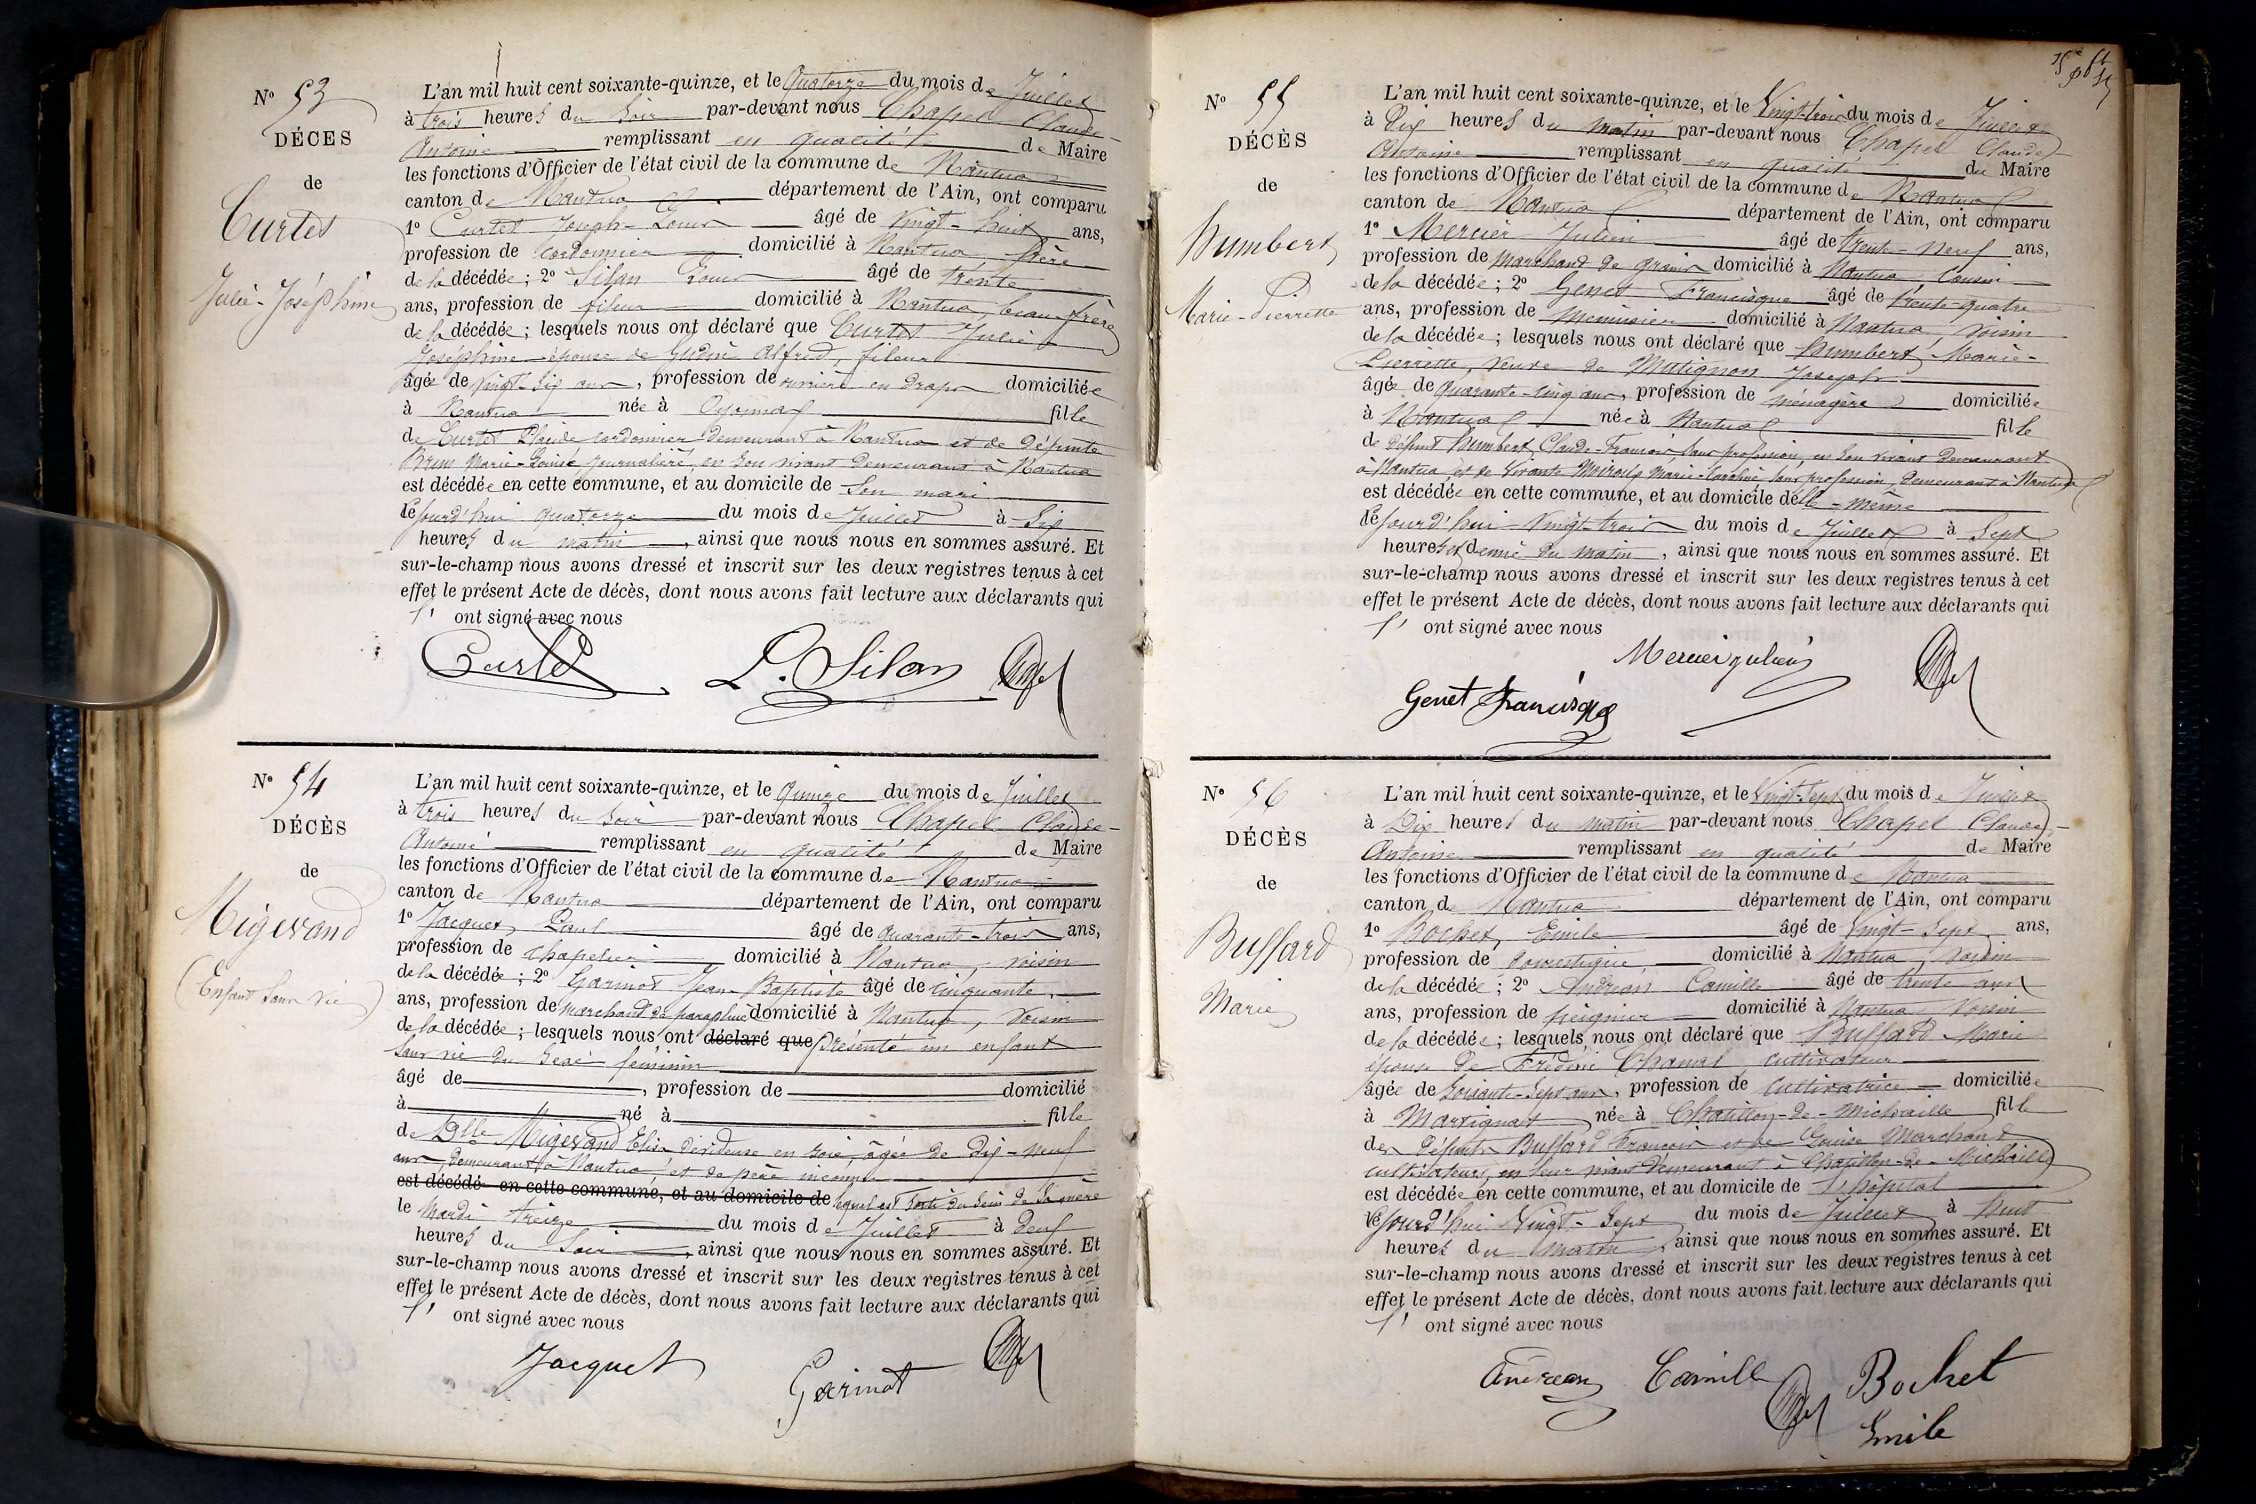 N° 53
DÉCES
de
Curtet
Julie-Joséphine
L'an mil huit cent soixante-quinze, et le Quatorze du mois de Juillet
à trois heures du soir par-devant nous Chapel Claude-
Antoine remplissant en qualité de Maire
les fonctions d'Officier de l'état civil de la commune de Nantua
canton de Nantua département de l'Ain, ont comparu
1° Curtet Joseph-Louis âgé de vingt-huit ans,
profession de cordonnier domicilié à Nantua, frère
de la décédée; 2° Silan Louis âgé de trente
ans, profession de fileur domicilié à Nantua, beau-frère
de la décédée; lesquels nous ont déclaré que Curtet Julie
Joséphine épouse de Gudin Alfred, fileur
âgée de vingt-six ans, profession de ouvrière en draps domiciliée
à Nantua née à Oyonnax fille
de Curtet Claude cordonnier demeurant à Nantua et de défunte
Brun Marie-Louise journalière, en son vivant demeurant à Nantua
est décédée en cette commune, et au domicile de son mari
le jourd'hui quatorze du mois de Juillet à six
heures du matin, ainsi que nous nous en sommes assuré. Et
sur-le-champ nous avons dressé et inscrit sur les deux registres tenus à cet
effet le présent Acte de décès, dont nous avons fait lecture aux déclarants qui
ont signé avec nous
Curtet L. Silan
N° 54
DÉCÈS
de
Migevand
(Enfant sans vie)
L'an mil huit cent soixante-quinze, et le quinze du mois de Juillet
à trois heures du soir par-devant nous Chapel Claude-
Antoine remplissant en qualité de Maire
les fonctions d'Officier de l'état civil de la commune de Nantua
canton de Nantua département de l'Ain, ont comparu
1° Jacquet Paul âgé de quarante-trois ans,
profession de chapelier domicilié à Nantua, voisin
de la décédée; 2° Garinot Jean-Baptiste âgé de cinquante
ans, profession de marchand de parapluie domicilié à Nantua, voisin
de la décédée; lesquels nous ont déclaré que présenté un enfant
sans vie du sexe féminin
âgé de , profession de domicilié
à né à fille
de Dlle Migevand Elisa dévideuse en soie, âgée de dix-neuf
ans, demeurant à Nantua et de père inconnu
est décédé en cette commune, et au domicile de lequel est sorti du sein de sa mère
le Mardi treize du mois de Juillet à deux
heures du soir, ainsi que nous nous en sommes assuré. Et
sur-le-champ nous avons dressé et inscrit sur les deux registres tenus à cet
effet le présent Acte de décès, dont nous avons fait lecture aux déclarants qui
ont signé avec nous
Jacquet Garinot
N° 55
DÉCÈS
de
Humbert
Marie-Pierrette
L'an mil huit cent soixante-quinze, et le Vingt-trois du mois de Juillet
à Dix heures du matin par-devant nous Chapel Claude-
Antoine remplissant en qualité de Maire
les fonctions d'Officier de l'état civil de la commune de Nantua
canton de Nantua département de l'Ain, ont comparu
1° Mercier Julien âgé de trente-neuf ans,
profession de marchand de grains domicilié à Nantua, Cousin
de la décédée; 2° Genet Francisque âgé de trente-quatre
ans, profession de menuisier domicilié à Nantua, voisin
de la décédée; lesquels nous ont déclaré que Humbert Marie-
Pierrette, veuve de Mutignon Joseph
âgée de quarante-cinq ans, profession de ménagère domiciliée
à Nantua née à Nantua fille
de défunt Humbert Claude-François sans profession, en son vivant demeurant
à Nantua et de vivante Marie-Caroline sans profession, demeurant à Nantua
est décédée en cette commune, et au domicile d'elle-même
le jourd'hui Vingt-trois du mois de Juillet à Sept
heures et demie du matin, ainsi que nous nous en sommes assuré. Et
sur-le-champ nous avons dressé et inscrit sur les deux registres tenus à cet
effet le présent Acte de décès, dont nous avons fait lecture aux déclarants qui
ont signé avec nous
Mercier julien
Genet Francisque
N° 56
DÉCÈS
de
Buffard
Marie
L'an mil huit cent soixante-quinze, et le Vingt-Sept du mois de Juillet
à Dix heures du matin par-devant nous Chapel Claude-
Antoine remplissant en qualité de Maire
les fonctions d'Officier de l'état civil de la commune de Nantua
canton de Nantua département de l'Ain, ont comparu
1° Bochet, Emile âgé de Vingt-Sept ans,
profession de domestique domicilié à Nantua, voisin
de la décédée; 2° Andréan Camille âgé de trente ans
ans, profession de peignier domicilié à Nantua voisin
de la décédée; lesquels nous ont déclaré que Buffard Marie
épouse de Frédéric Chanal cultivateur
âgée de Soixante-Sept ans, profession de Cultivatrice domiciliée
à Martignat née à Chatillon-de-Michaille fille
des défunts Buffard François et de Louise Marchand
cultivateurs, en leur vivant demeurant à Chatillon-de-Michaille
est décédée en cette commune, et au domicile de l'hôpital
le jourd'hui Vingt-Sept du mois de Juillet à huit
heures du matin, ainsi que nous nous en sommes assuré. Et
sur-le-champ nous avons dressé et inscrit sur les deux registres tenus à cet
effet le présent Acte de décès, dont nous avons fait lecture aux déclarants qui
ont signé avec nous
Andréan Camille Bochet
Emile